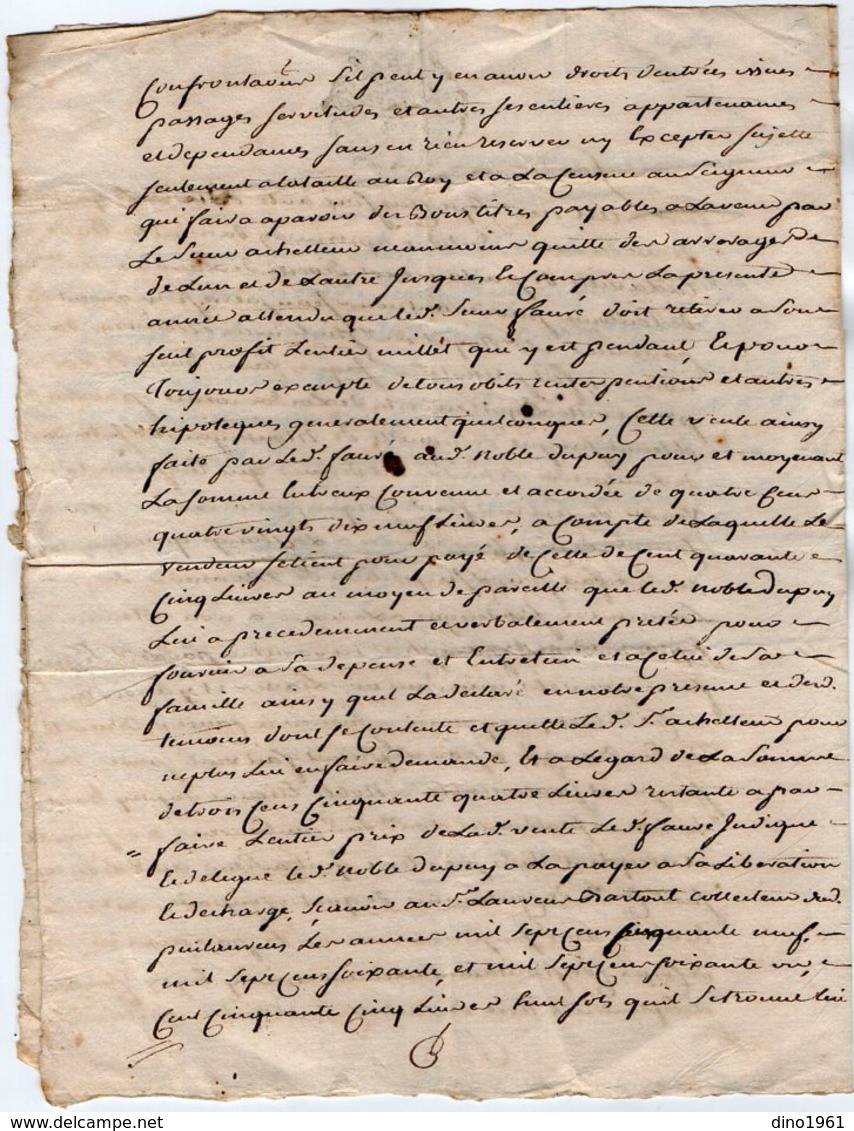 Confronta͠ons Sil peut y en avoir droits dentrées issues
passages servitudes et autres ses entieres appartenances
et dependances sans en rien reserver ny Excepter sujette
seulement a la taille au Roy et a La Censive au Seigneur
qui faira aparoir de Bons titres payables a Lavenir par
Le Sieur achetteur neanmoins quitte des arrerages de
de Lun et de Lautre Jusques Et Compris La presente
année attendu que led. Sieur fauré doit retirer a Son
seul profit Lentier millet qui y est pendant Et pour
Toujours exempte de tous obits rentes pentions et autres
hipoteques generalement quelconques, Cette vente ainsy
faite par Led. fauré aud. Noble dupuy pour et moyenant
La somme Entreux Convenue et accordée de quatre Cens
quatre vingts dix neuf Livres, a Compte de Laquelle Le
vendeur se tient pour payé de Celle de Cent quarante
Cinq Livres au moyen de pareille que led. Noble dupuy
Lui a precedemment et verbalement pretée pour
fournir a Sa depense et Entretien et a Celui de Sa
famille ainsy quil La declaré en notre presence et desd.
temoins dont se Contente et quitte Led. Sr. achetteur pour
ne plus Lui en faire demande, Et a Legard de La Somme
de trois Cens Cinquante quatre Livres restante a par
faire Lentier prix de Lad. vente Led. fauré Indique
Et delegue led. Noble dupuy a La payer a Sa Liberation
Et decharge, Scavoir au Sr. Laurens collecteur dud.
puilaurens Les années mil Sept Cens Cinquante neuf,
mil Sept Cens Soixante, et mil Sept Cens Soixante un,
Cent Cinquante Cinq Livres huit Sols quil Se trouve lui
dino1961